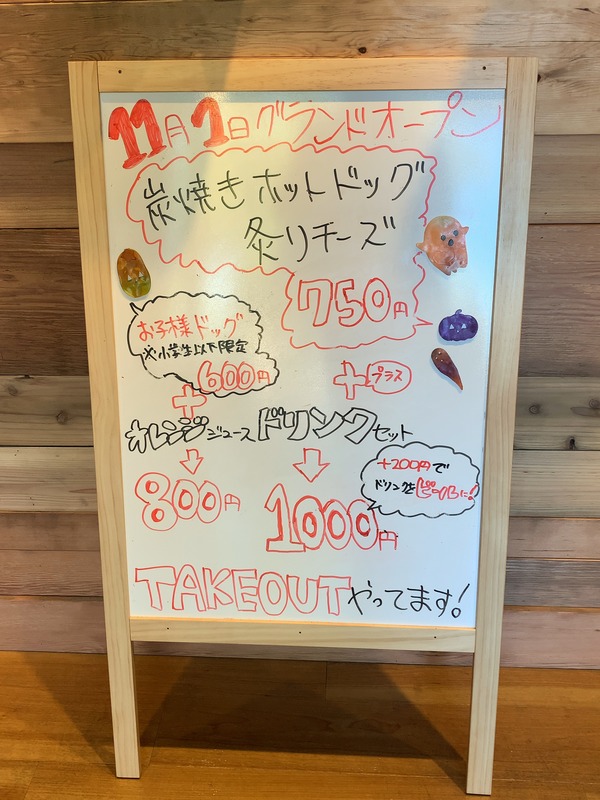 11月1日グランドオープン
炭焼きホットドッグ
炙りチーズ
750円
お子様ドッグ
※小学生以下限定
600円
+
+プラス
オレンジジュース
ドリンクセット
↓
↓
800円
1000円
+200円で
ドリンクをビールに!
TAKEOUTやってます!